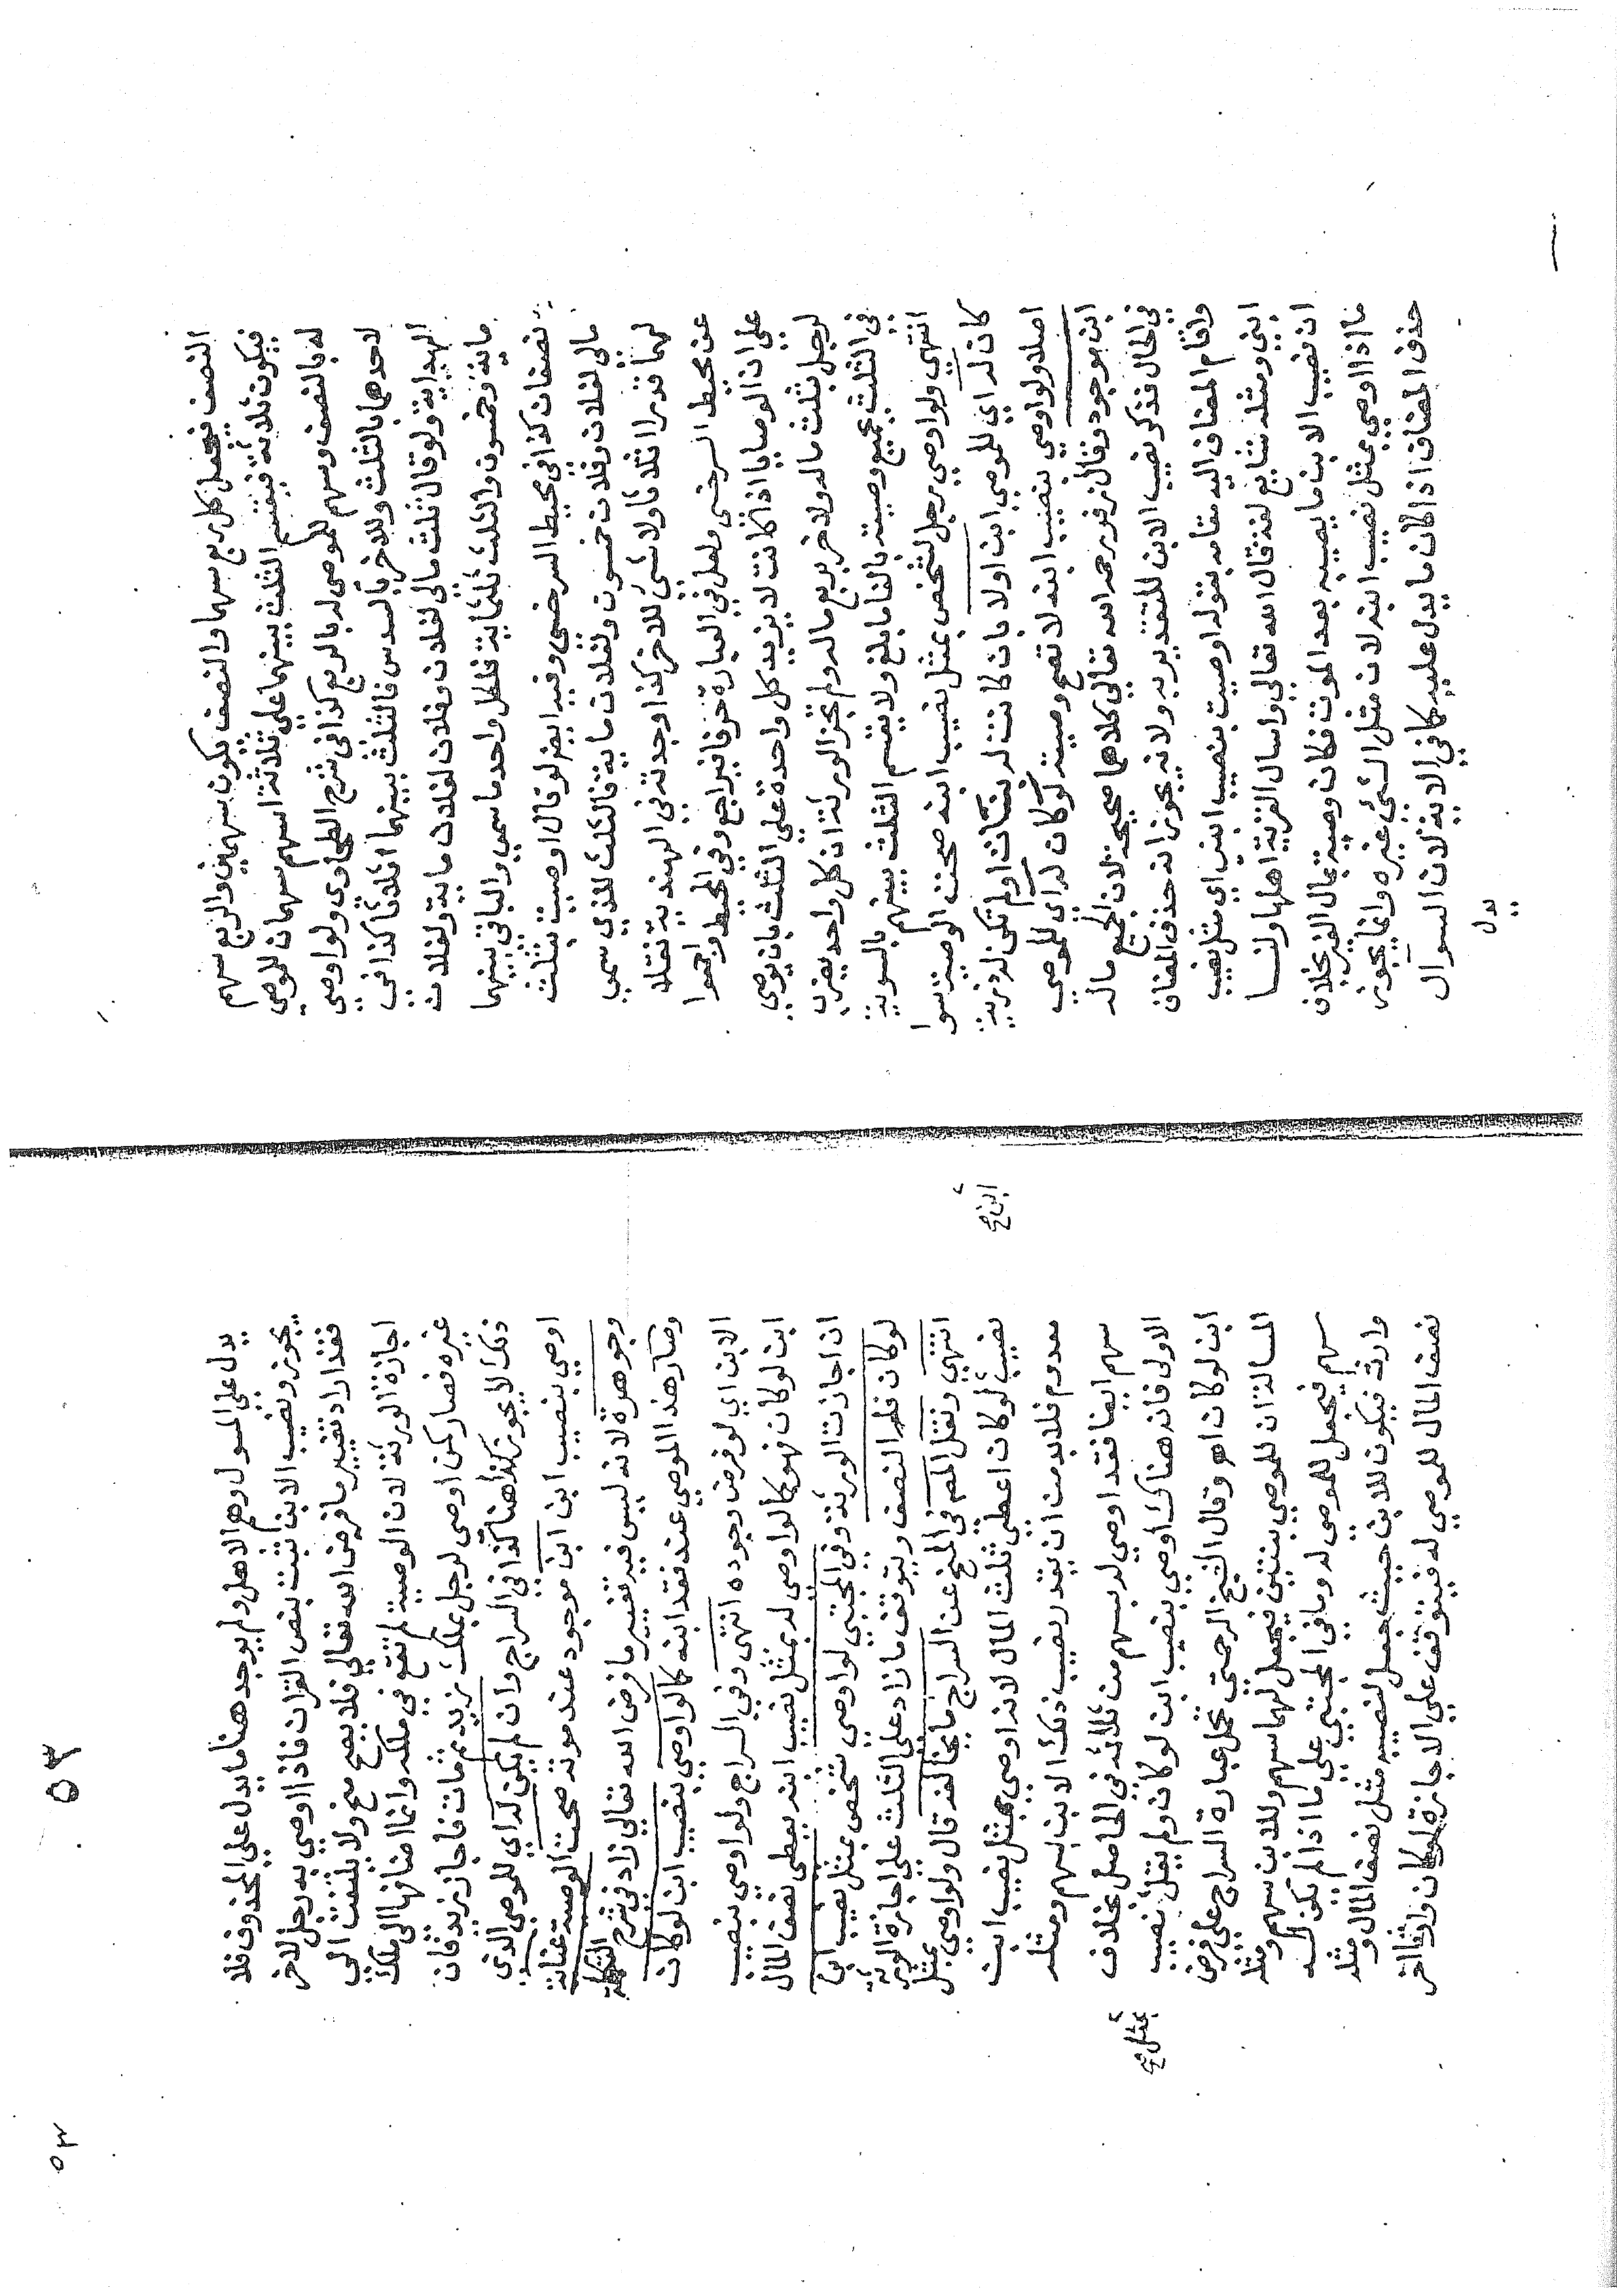 النصف فيجعل كل ربع سهما والنصف يكون سهمين والربع سهم
فيكون ثلاثة فيقسم الثلث بينهما علي ثلاثة اسهم سهمان للموصي
له بالنصف وسهم للموصي له بالربع كذا في شرح الطحاوي ولو اوصي
لاحدهما بالثلث وللاخر بالسدس فالثلث بينهما اثلاثا كذا في
الهداية ولو قال ثلث مالي لفلان وفلان لفلان ماية ولفلان
ماية وخمسون والثلث ثلثماية فلكل واحد ما سمي والباقي بينهما
نصفان كذا في محيط السرخسي وفيه ايضا لو قال اوصيت بثلث
مالي لفلان وفلان لفلان خمسون ولفلان ماية فالثلث للذي سمي
لهما قدرا اثلاثا ولا شيء للاخر كذا وجدته في الهندية نقلا
عن محيط السرخسي ولعل في العبارة حرفا فيراجع وفي المحيط واجمعوا
علي ان الوصايا اذا كانت لا يزيد كل واحدة علي الثلث بان يوصي
لرجل بثلث ماله ولاخر بربع ماله ولم تجز الورثة ان كل واحد يضرب
في الثلث بجميع وصيته بالغا ما بلغ ولا يقسم الثلث بينهم بالسوية
انتهي ولو اوصي رجل لشخص بمثل نصيب ابنه صحت الوصية سوا
كان له اي للموصي ابن اولا بان كانت له بنات او لم تكن له ذرية
اصلا ولو اوصي بنصيب ابنه لا تصح وصيته لو كان له اي للموصي
ابن موجود وقال زفر رحمه الله تعالي كلاهما صحيحة لان الجميع ماله
في الحال فذكر نصيب الابن للتقدير به ولانه يجوز انه حذف المضاف
واقام المضاف اليه مقامه بقوله اوصيت بنصيب ابني اي مثل نصيب
ابني ومثله شايع لغة قال الله تعالي واسال القرية اهلها ولنا
ان نصيب الابن ما يصيبه بعد الموت فكان وصية بمال الغير بخلاف
ما اذا اوصي بمثل نصيب ابنه لان مثل الشيء غيره وانما يجوز
حذف المضاف اذا كان ما يدل عليه كما في الاية لان السوال
يدل
يدل علي المسول وهم الاهل ولم يوجد هنا ما يدل علي المحذوف فلا
يجوز ونصيب الابن ثبت بنص القران فاذا اوصي به رجل لاخر
فقد اراد تغيير ما فرض الله تعالي فلا يصح منح ولا يلتفت الي
اجازة الورثة لان الوصية لم تقع في ملكه وانما اضافها الي ملك
غيره فصار كمن اوصي لرجل بملك زيد ثم مات فاجاز زيد فان
ذلك لا يجوز كذا هنا كذا في السراج وان لم يكن له اي للموصي الذي
اوصي بنصيب ابن ابن موجود عند موته صحت الوصية عناية
وجوهرة لانه ليس فيه تغيير ما فرض الله تعالي زاد في شرح التكملة
وصار هذا الموصي عند فقد ابنه كما لو اوصي بنصيب ابن لو كان
الابن اي لو فرض وجوده انتهي وفي السراج ولو اوصي بنصيب
ابن لو كان فهو كما لو اوصي له بمثل نصيب ابنه يعطي نصف المال
ان اجازت الورثة وفي المجتبي لو اوصي شخص بمثل نصيب ابن
لو كان فله النصف ويتوقف ما زاد علي الثلث علي اجازة الورثة
انتهي ونقل المص في المنح عن السراج ما يخالفه قال ولو اوصي بمثل
نصيب لو كان اعطي ثلث المال لانه اوصي بمثل نصيب ابن
ابن صح
معدوم فلا بد من ان يقدر نصيب ذلك الابن بسهم ومثله
سهم ايضا فقد اوصي له بسهم من ثلاثة في الحاصل بخلاف
الاولي فانه هناك اوصي بنصيب ابن لو كان ولم يقل بنصيب
بمثل صح
ابن لو كان اهـ وقال الشيخ الرحمتي تحمل عبارة السراج علي فرض
المسالة ان للموصي بنتين فيجعل لهما سهم وللابن سهم ومثله
سهم فيجعل للموصي له وما في المجتبي علي ما اذا لم يكن له
وارث فيكون للابن حيث جعل لنصيبه مثل نصف المال ومثله
نصف المال للموصي له فيتوقف علي الاجازة لو كان وارث اخر
٥٣
٥٣